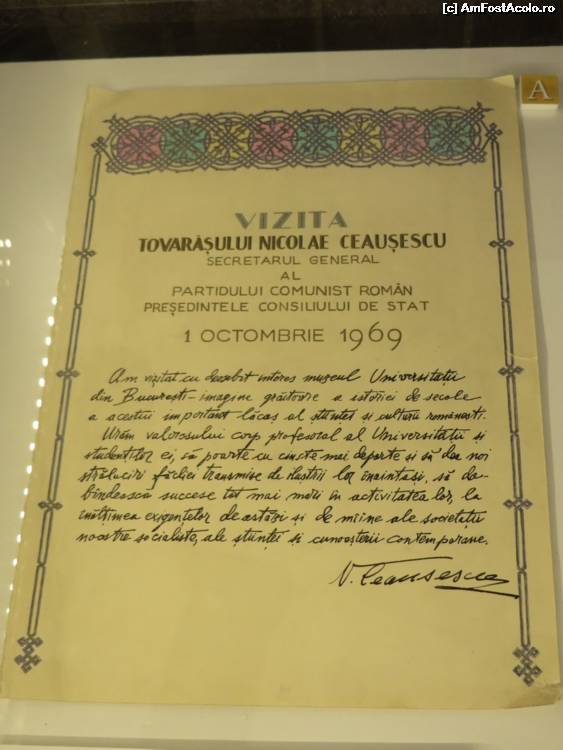 [c] AmFostAcolo.ro
A
VIZITA
TOVARĂȘULUI NICOLAE CEAUȘESCU
SECRETARUL GENERAL
AL
PARTIDULUI COMUNIST ROMÂN
PREȘEDINTELE CONSILIULUI DE STAT
1 OCTOMBRIE 1969
Am vizitat cu deosebit interes muzeul Universității
din București - imagine grăitoare a istoriei de secole
a acestui important lăcaș al științei și culturii românești.
Urăm valorosului corp profesoral al Universității și
studenților ei, să poarte cu cinste mai departe și să dea noi
străluciri făcliei transmise de iluștrii lor înaintași, să do-
bîndească succese tot mai mari în activitatea lor, la
înălțimea exigențelor de astăzi și de mîine ale societății
noastre socialiste, ale științei și cunoașterii contemporane.
N. Ceausescu